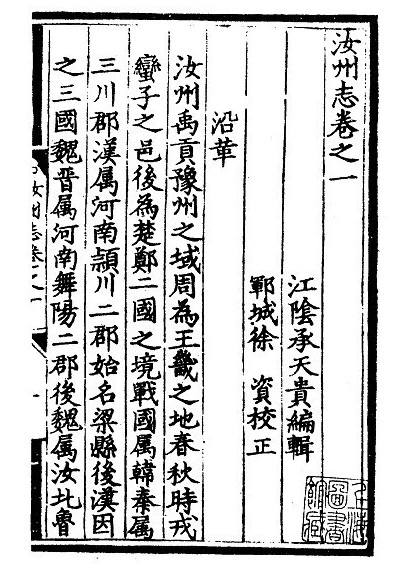 汝州志卷之一
江陰承天貴編輯
鄆城徐 資校正
沿革
汝州禹貢豫州之域周為王畿之地春秋時戎
蠻子之邑後為楚鄭二國之境戰國属韓秦属
三川郡漢属河南頴川二郡始名梁縣後漢因
之三國魏晉属河南舞陽二郡後魏属汝北魯
汝州志卷之一
上海圖書館藏